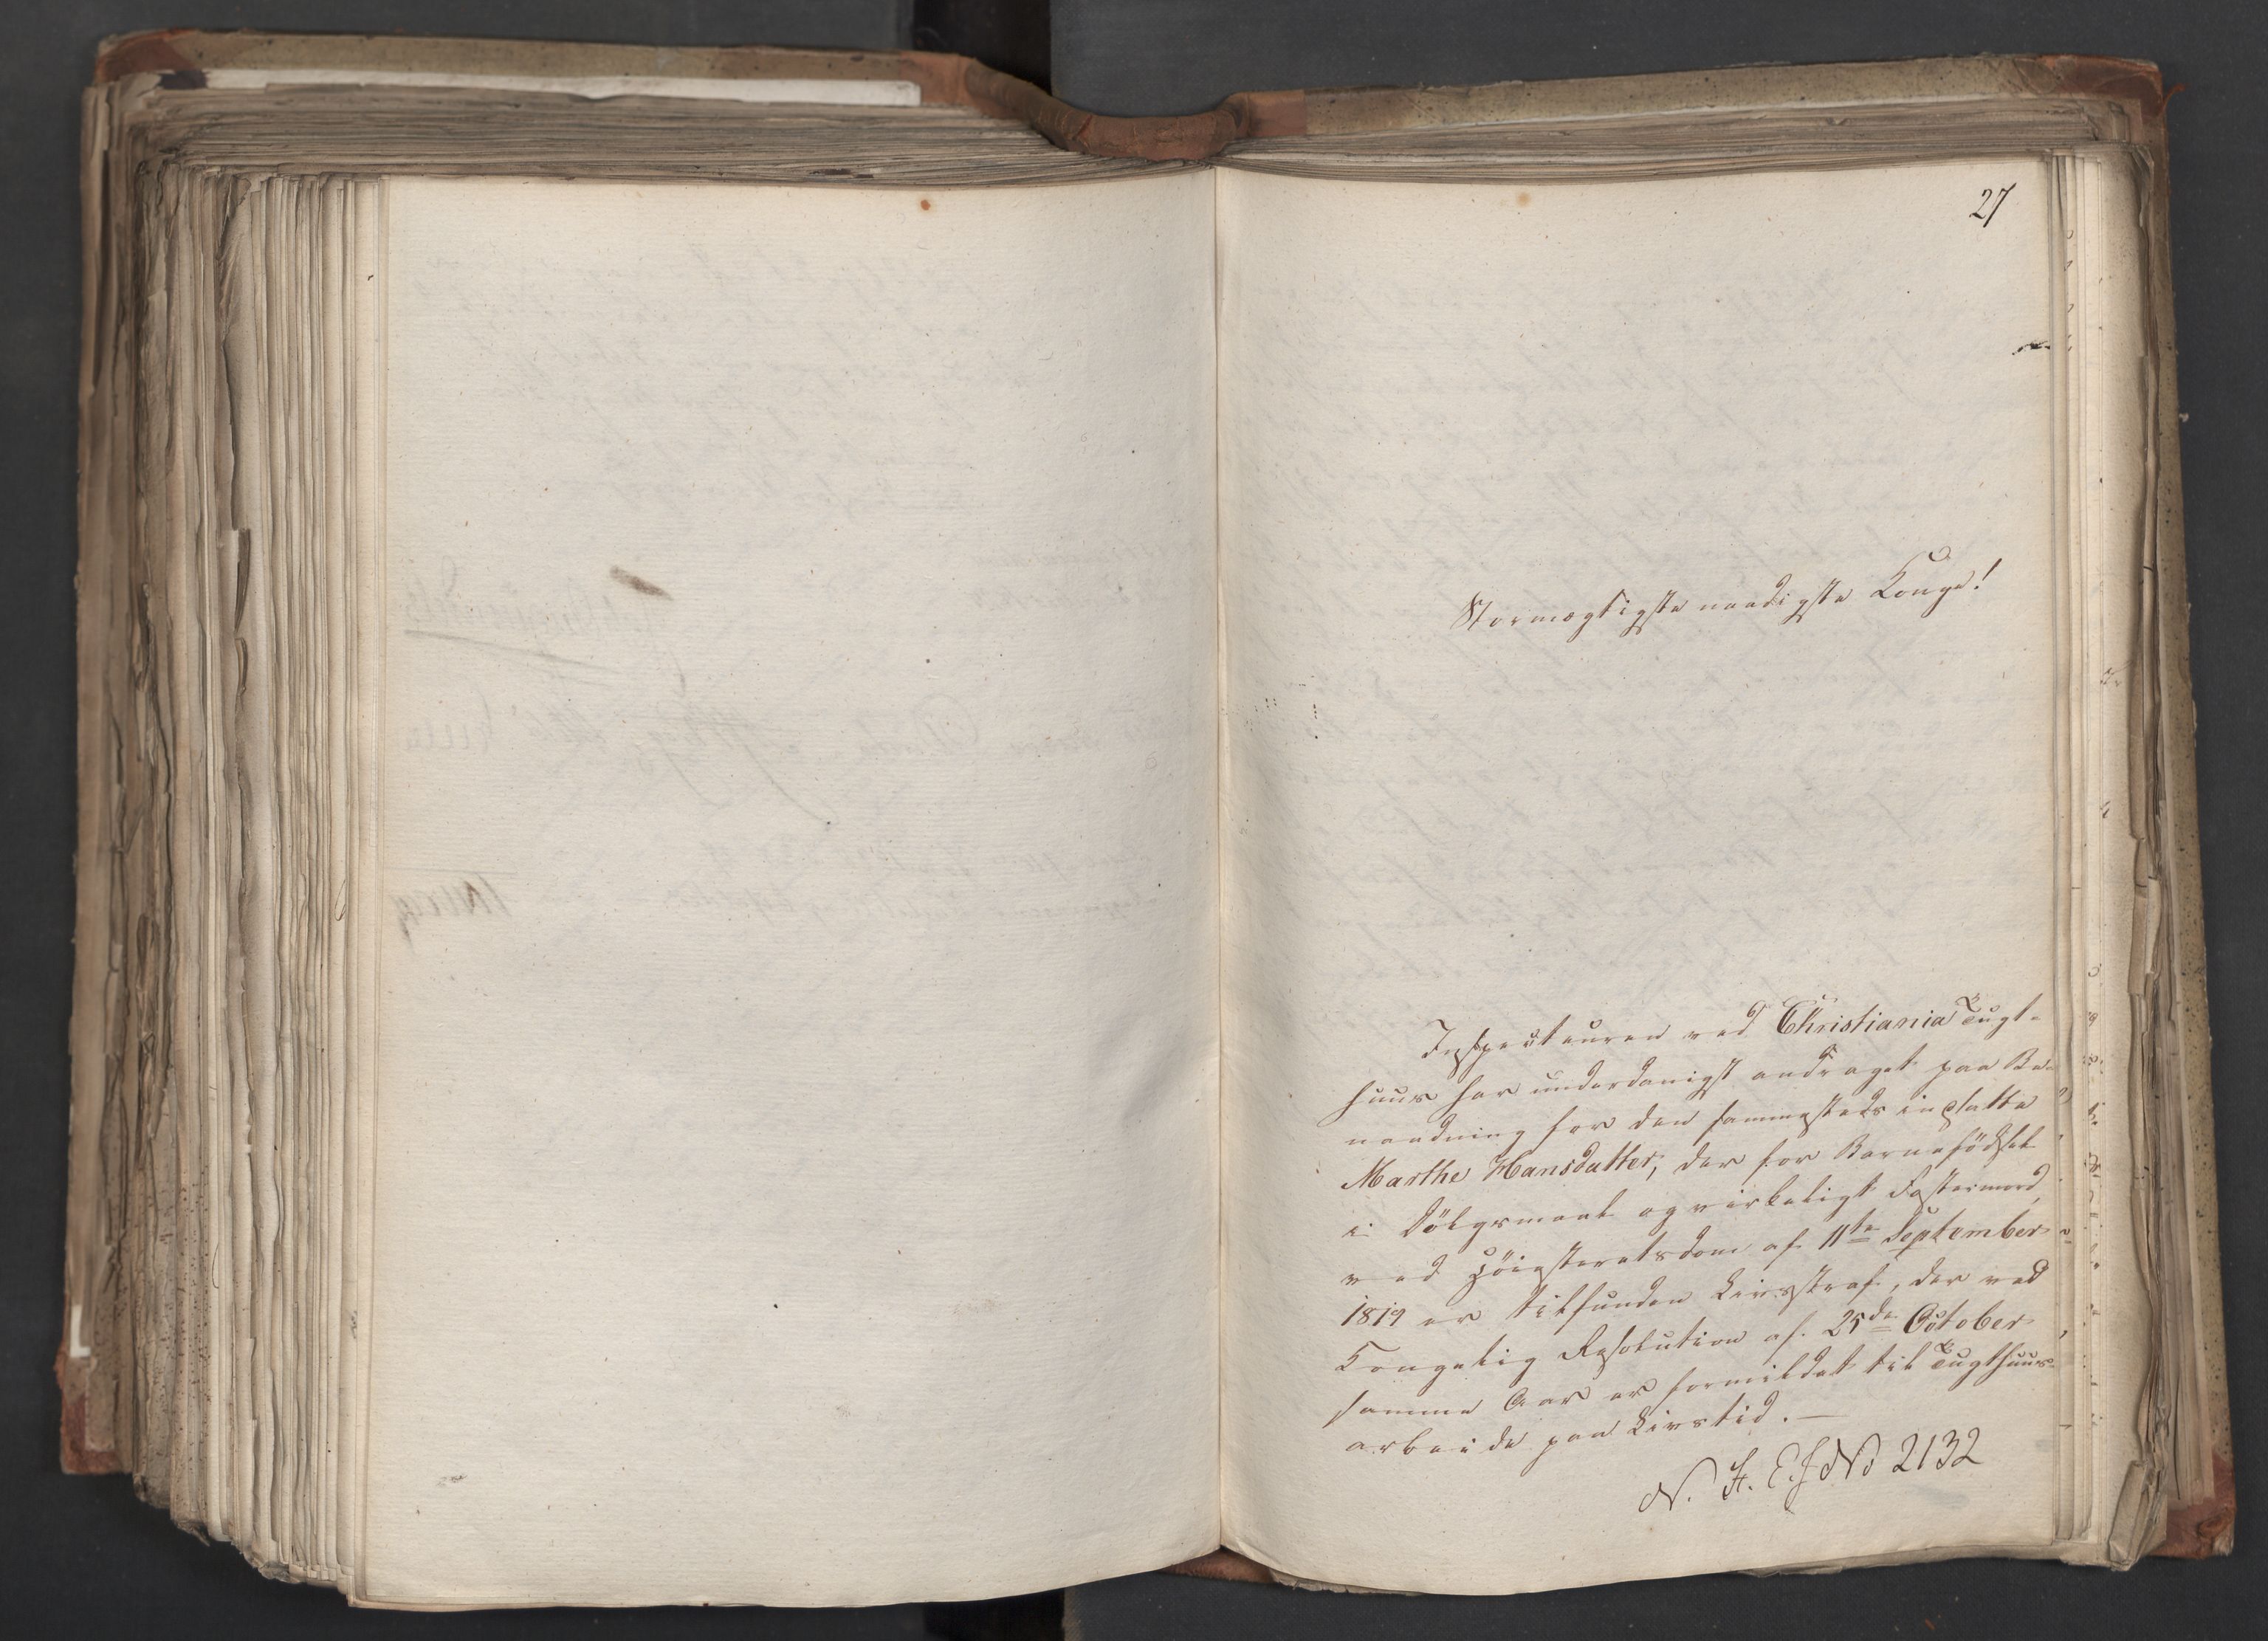 27
Stormægtigste naadigste Konge!
Inspecteuren ved Christiania Tugt-
huus har underdanigst andraget paa Be-
naadning for den sammesteds indsatte
Marthe Hansdatter, der for Barnefödsel
i Dölgsmaal og virkeligt Fostermord,
ved Höiesteretsdom af 11te September
1819 er tilfunden Livsstraf, der ved
Kongelig Resolution af 25de October
samme Aar er formildet til Tugthuus-
arbeide paa Livstid.—
N. H. E. J No 2132